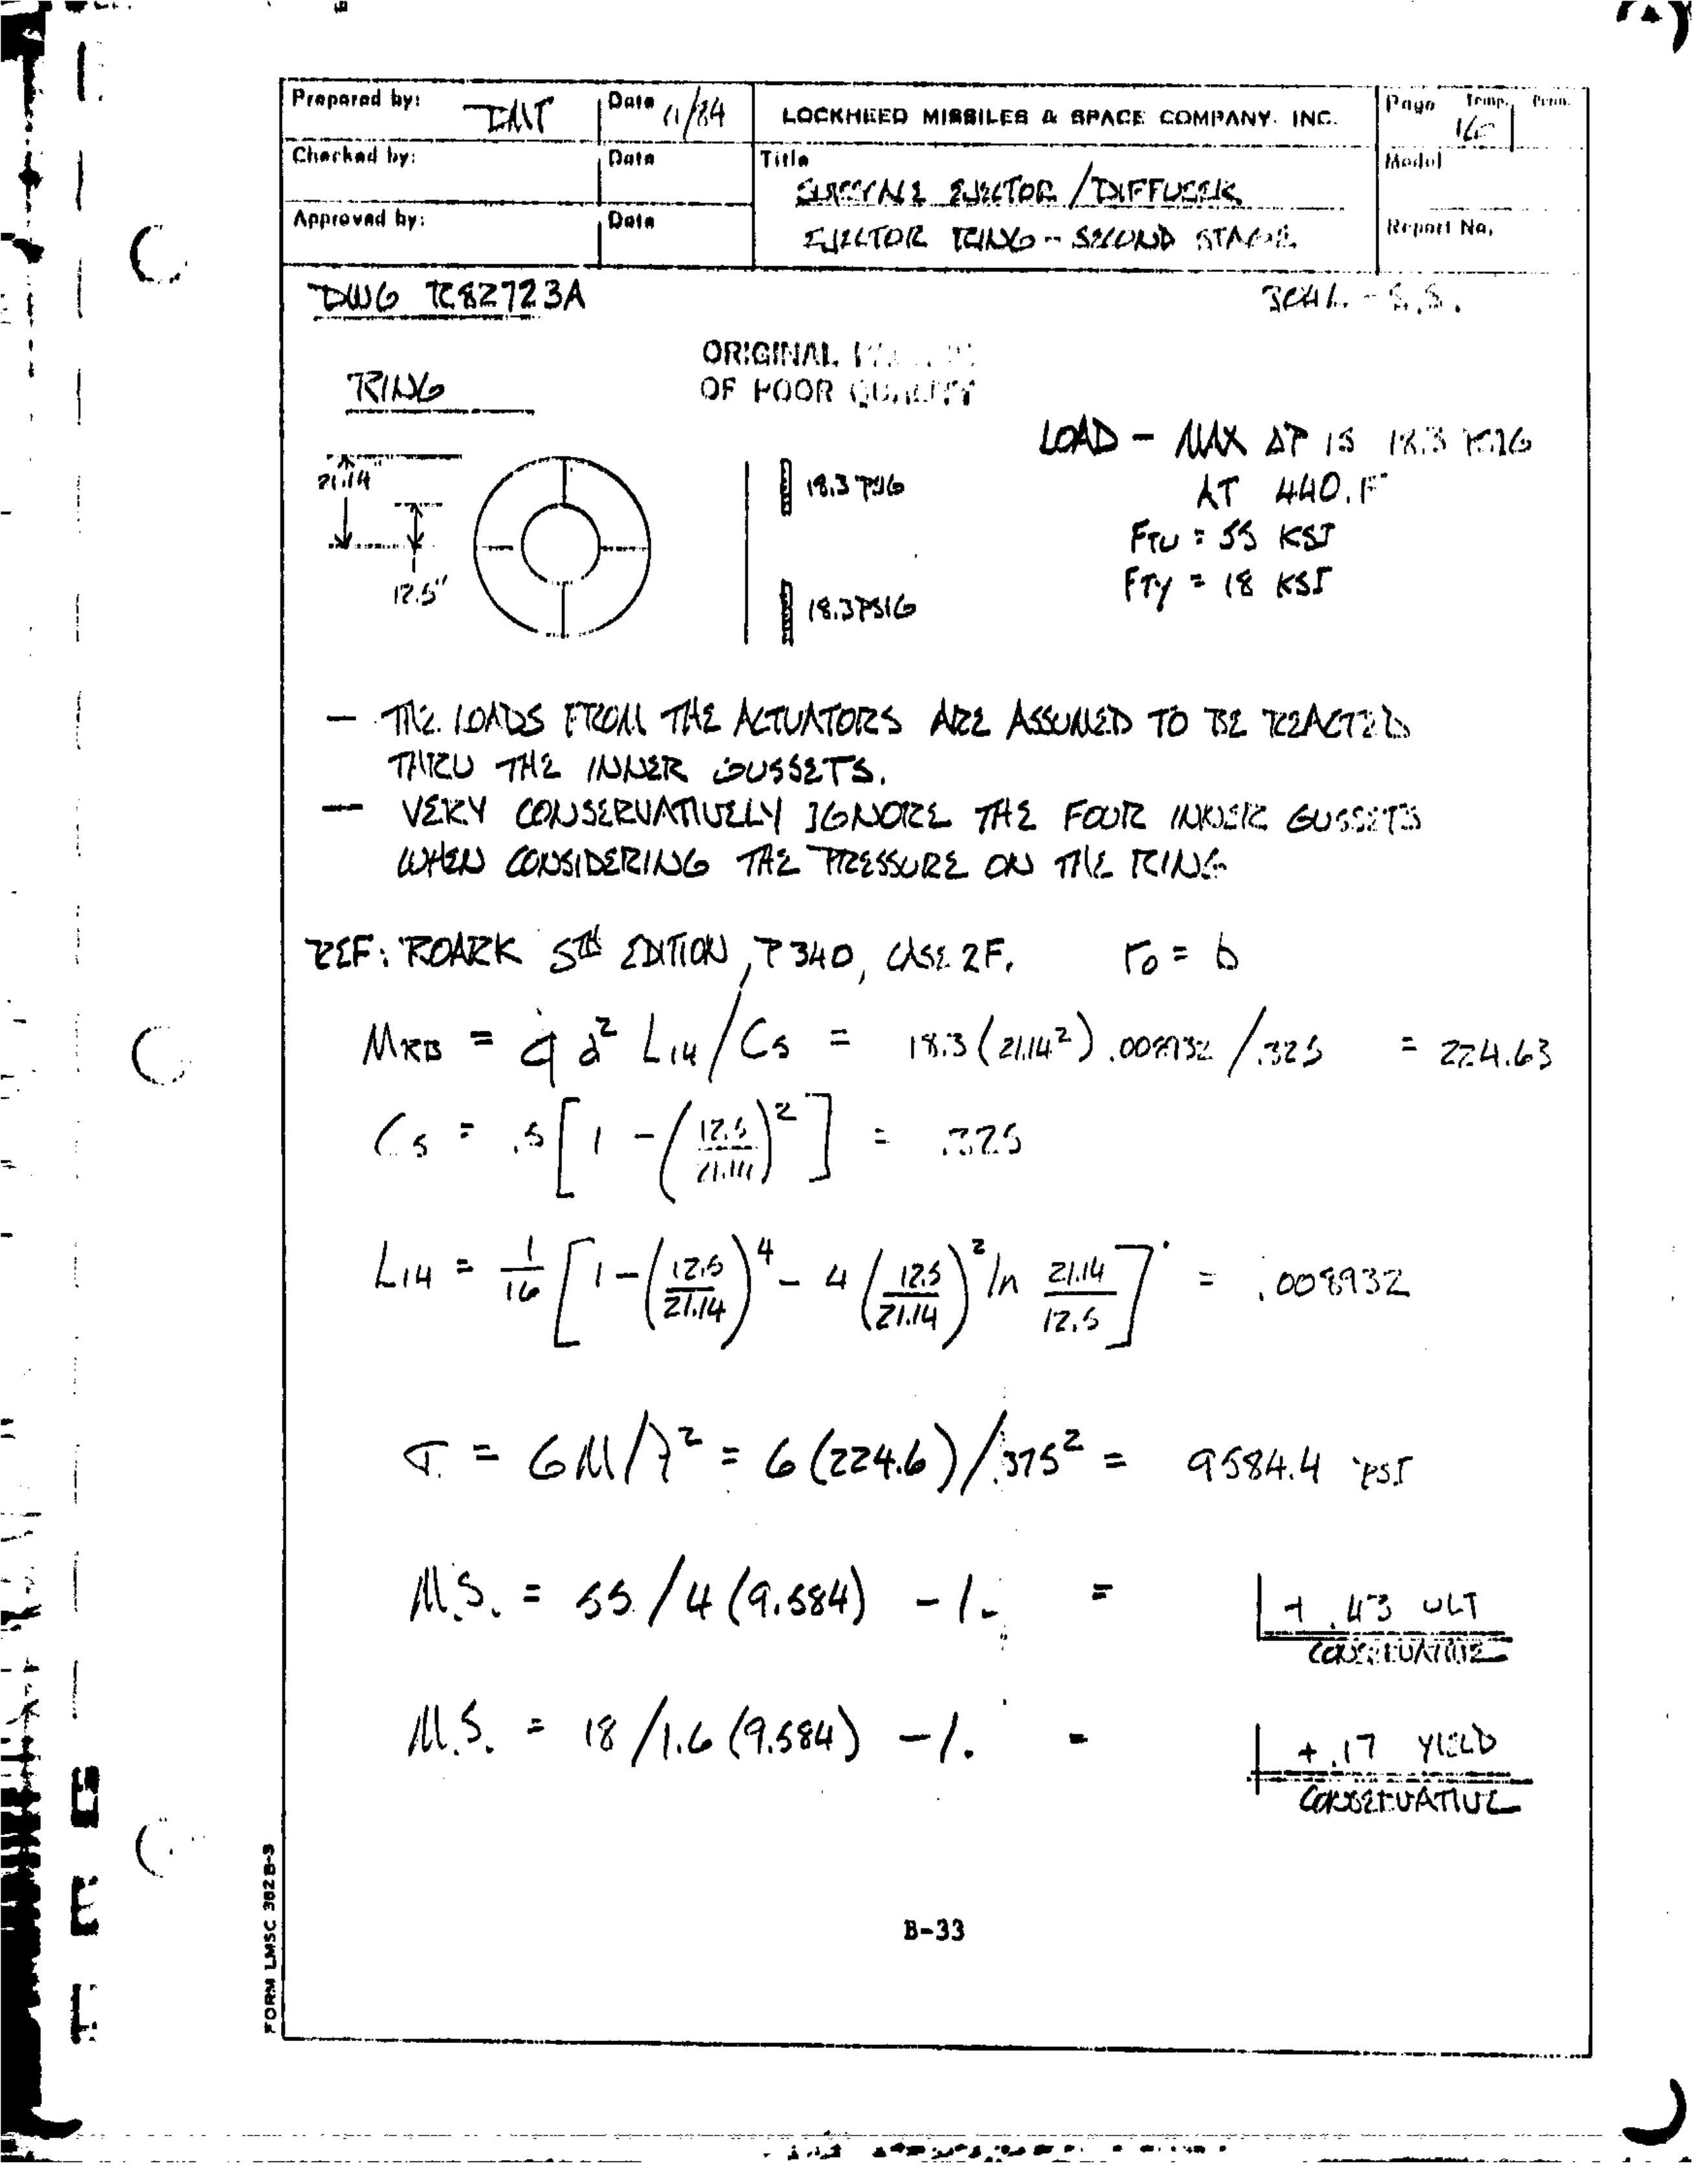 Prepared by: Date 11/84 LOCKHEED MISSILES & SPACE COMPANY. INC. Page Temp. Perm.
16
Checked by: Date Title Model
EJECTOR / DIFFUSER
Approved by: Date EJECTOR RING - SECOND STAGE Report No.
DWG RC82723A 304L - S.S.
ORIGINAL
OF POOR QUALITY
RING
LOAD - MAX ΔP IS 18.3 PSIG
21.14" 18.3 PSIG AT 440°F
FTU = 55 KSI
12.5" 18.3 PSIG FTY = 18 KSI
- THE LOADS FROM THE ACTUATORS ARE ASSUMED TO BE REACTED
THRU THE INNER GUSSETS.
- VERY CONSERVATIVELY IGNORE THE FOUR INNER GUSSETS
WHEN CONSIDERING THE PRESSURE ON THE RING
REF: ROARK 5TH EDITION, P 340, CASE 2F. r₀ = b
MRB = q a² L14 / C5 = 18.3 (21.14²) .008932 / .325 = 224.63
C5 = .5 [1 - (12.5/21.14)²] = .325
L14 = 1/16 [1 - (12.5/21.14)⁴ - 4 (12.5/21.14)² ln 21.14/12.5] = .008932
σ = 6M/t² = 6 (224.6) / .375² = 9584.4 PSI
M.S. = 55 / 4 (9.584) - 1. = + .43 ULT
CONSERVATIVE
M.S. = 18 / 1.6 (9.584) - 1. = + .17 YIELD
CONSERVATIVE
B-33
FORM LMSC 382B-3